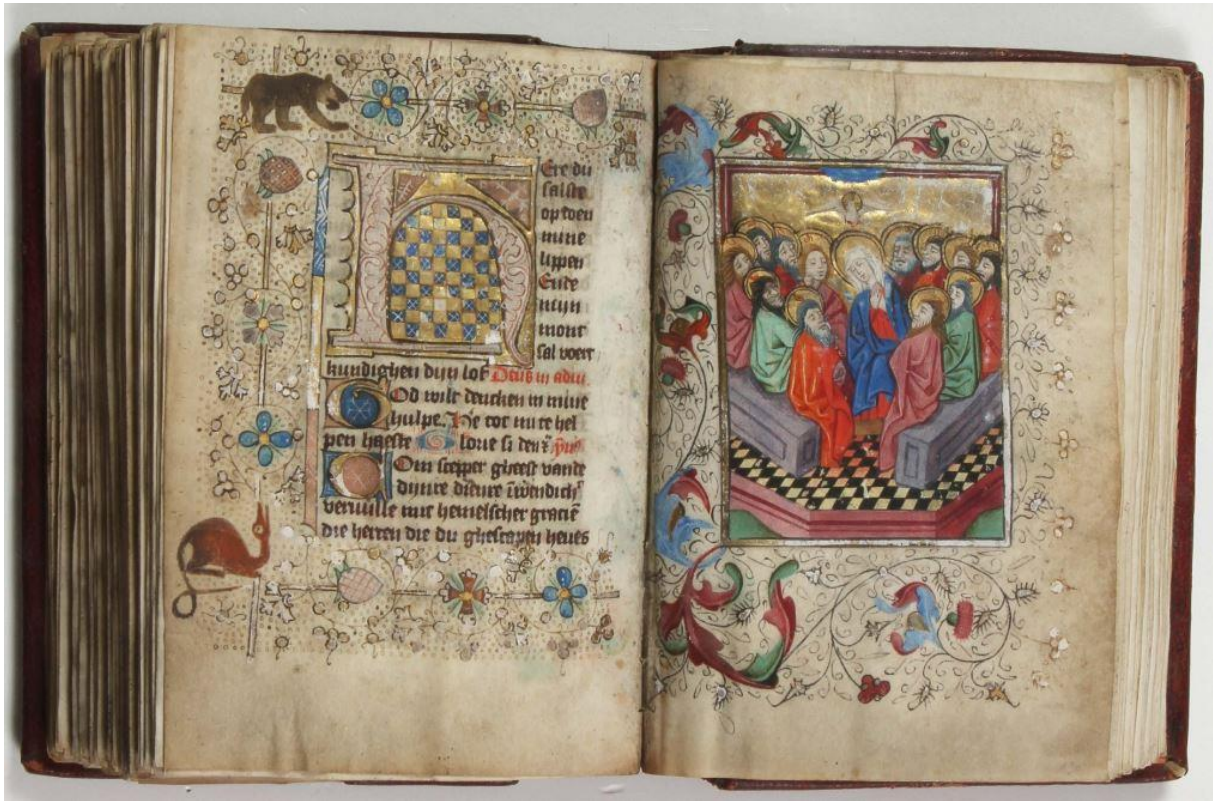 Here du
salste
op doen
mine
lippen
Ende
mijn
mont
sal voert
kundighen dijn lof Deus in adiu
God wilt dencken in mine
hulpe. He tot mi te hel
pen haeste Glorie si den
Com scepper gheest vande
dijnre dienre
vervulle mit hemelscher graciē
die herten die du ghescapen heves